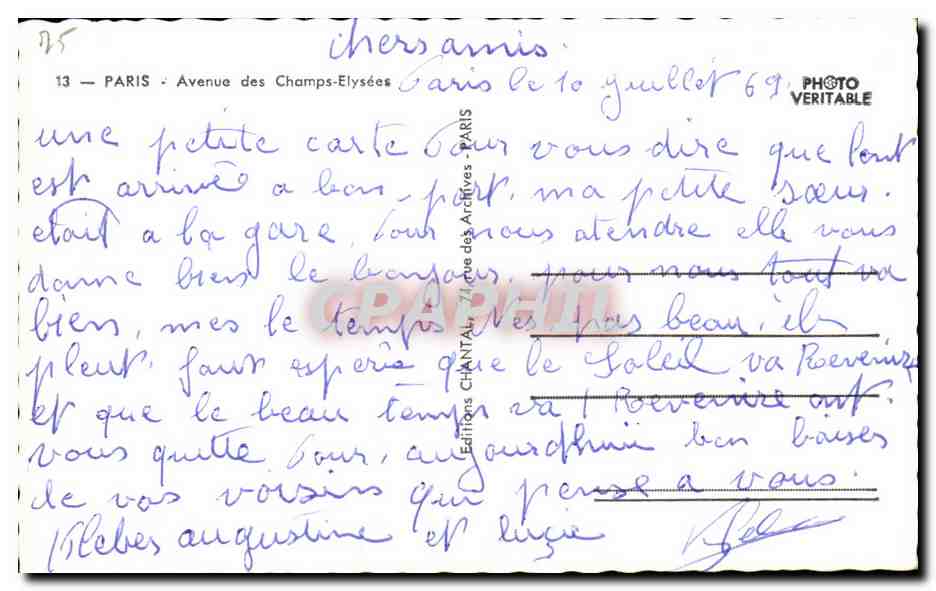 75
chers amis.
13 — PARIS - Avenue des Champs-Elysées
Paris le 10 juillet 69.
PHOTO
VERITABLE
une petite carte Pour vous dire que tout
est arrivé a bon port. ma petite sœur.
etait a la gare. Pour nous atendre elle vous
donne bien le bonjour, pour nous tout va
bien, mes le temps N'es pas beau, il
pleut. faut esperé que le Soleil va Revenire
et que le beau temps va Revenire ont.
vous quitte Pour, aujourdhuii bon baises
de vos voisins qui pense a vous.
Kleber augustine et lucie
Editions CHANTAL, 74, rue des Archives - PARIS
CPAPHIL